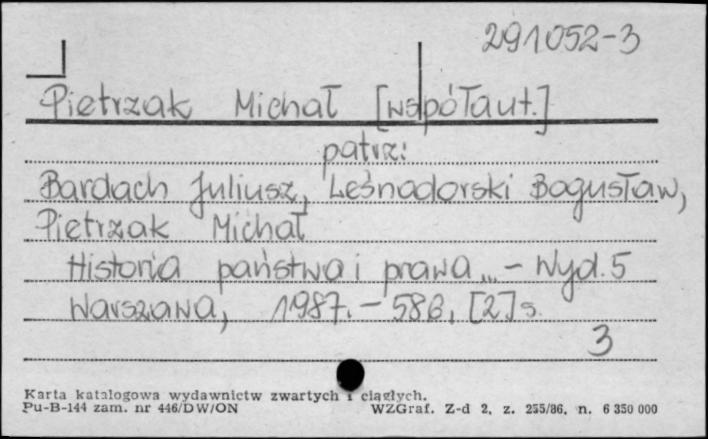 291052-3
Pietrzak Michał [współaut.]
patrz:
Bardach Juliusz, Leśnodorski Bogusław,
Pietrzak Michał
Historia państwa i prawa... - Wyd. 5
Warszawa, 1987. - 586, [2] s.
3
Karta katalogowa wydawnictw zwartych i ciągłych.
Pu-B-144 zam. nr 446/DW/ON WZGraf. Z-d 2, z. 255/86. n. 6 350 000